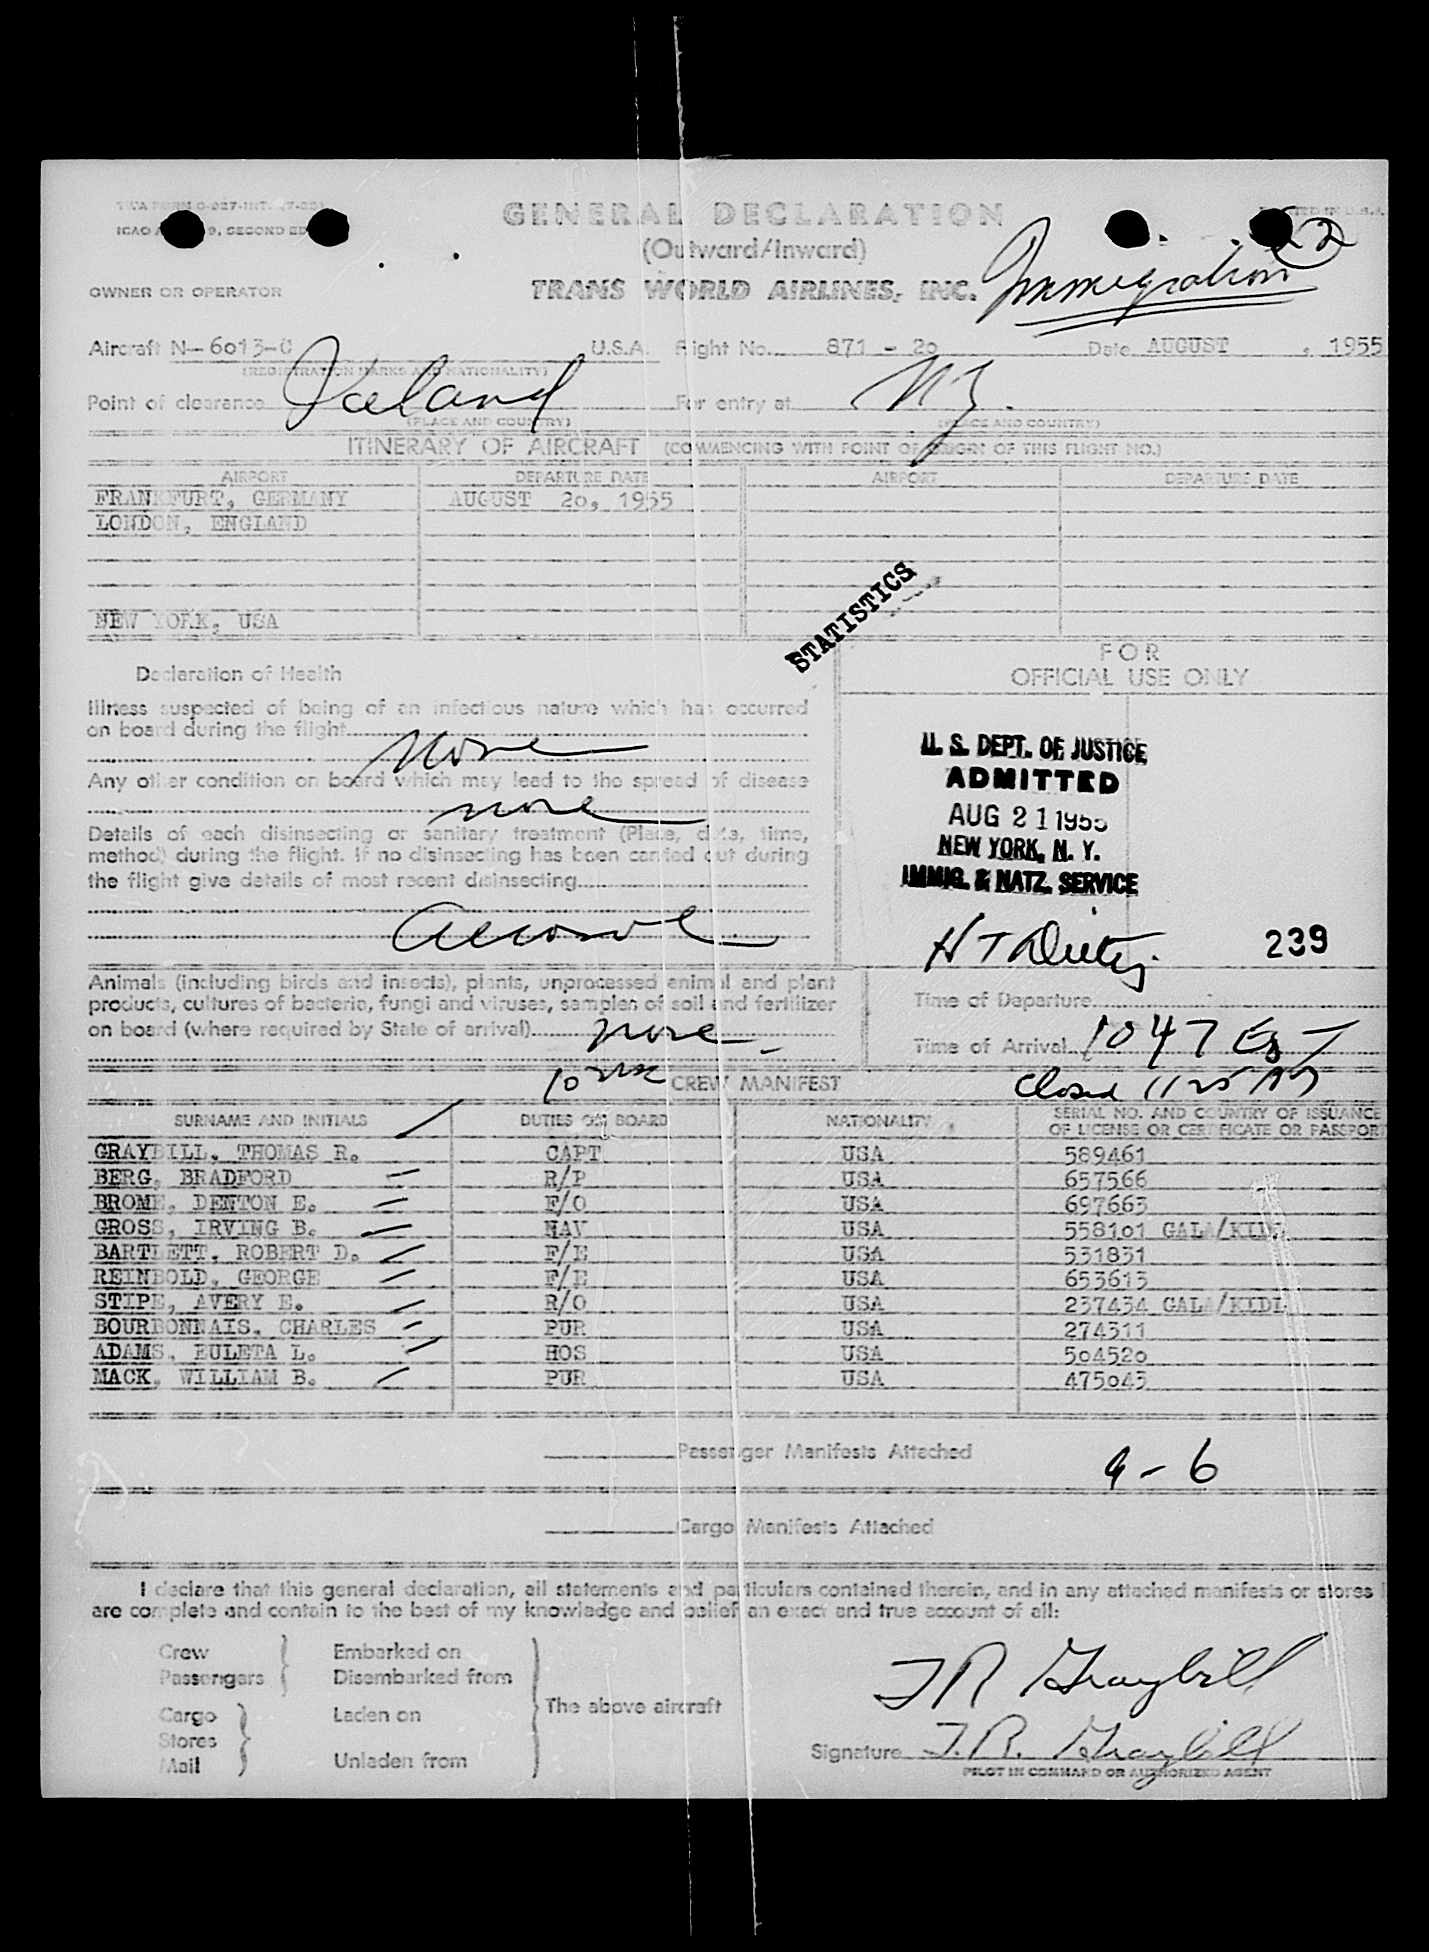 GENERAL DECLARATION
(Outward/Inward)
TRANS WORLD AIRLINES, INC.
Immigration
22
OWNER OR OPERATOR
Aircraft N-6013-C U.S.A. Flight No. 871 - 20 Date AUGUST , 1955
(REGISTRATION MARKS AND NATIONALITY)
Point of clearance Iceland For entry at NY.
(PLACE AND COUNTRY) (PLACE AND COUNTRY)
ITINERARY OF AIRCRAFT (COMMENCING WITH POINT OF ORIGIN OF THIS FLIGHT NO.)
AIRPORT DEPARTURE DATE AIRPORT DEPARTURE DATE
FRANKFURT, GERMANY AUGUST 20, 1955
LONDON, ENGLAND
NEW YORK, USA
STATISTICS
FOR
OFFICIAL USE ONLY
Declaration of Health
Illness suspected of being of an infectious nature which has occurred
on board during the flight
None
Any other condition on board which may lead to the spread of disease
none
Details of each disinsecting or sanitary treatment (Place, date, time,
method) during the flight. If no disinsecting has been carried out during
the flight give details of most recent disinsecting
Aerosol
U. S. DEPT. OF JUSTICE
ADMITTED
AUG 21 1955
NEW YORK, N. Y.
IMMIG. & NATZ. SERVICE
239
Animals (including birds and insects), plants, unprocessed animal and plant
products, cultures of bacteria, fungi and viruses, samples of soil and fertilizer
on board (where required by State of arrival) none
Time of Departure
Time of Arrival 1047 EST
Closed 1125
10 CREW MANIFEST
SURNAME AND INITIALS DUTIES ON BOARD NATIONALITY SERIAL NO. AND COUNTRY OF ISSUANCE
OF LICENSE OR CERTIFICATE OR PASSPORT
GRAYBILL, THOMAS R. CAPT USA 589461
BERG, BRADFORD R/P USA 657566
BROME, DENTON E. F/O USA 697663
GROSS, IRVING B. NAV USA 558101 GALA/KIDL
BARTLETT, ROBERT D. F/E USA 531831
REINBOLD, GEORGE F/E USA 653613
STIPE, AVERY E. R/O USA 237434 GALA/KIDL
BOURBONNAIS, CHARLES PUR USA 274311
ADAMS, EULETA L. HOS USA 504520
MACK, WILLIAM B. PUR USA 475043
Passenger Manifests Attached
9-6
Cargo Manifests Attached
I declare that this general declaration, all statements and particulars contained therein, and in any attached manifests or stores
are complete and contain to the best of my knowledge and belief an exact and true account of all:
Crew Embarked on
Passengers Disembarked from
Cargo Laden on The above aircraft
Stores
Mail Unladen from
T R Graybill
Signature T.R. Graybill
PILOT IN COMMAND OR AUTHORIZED AGENT